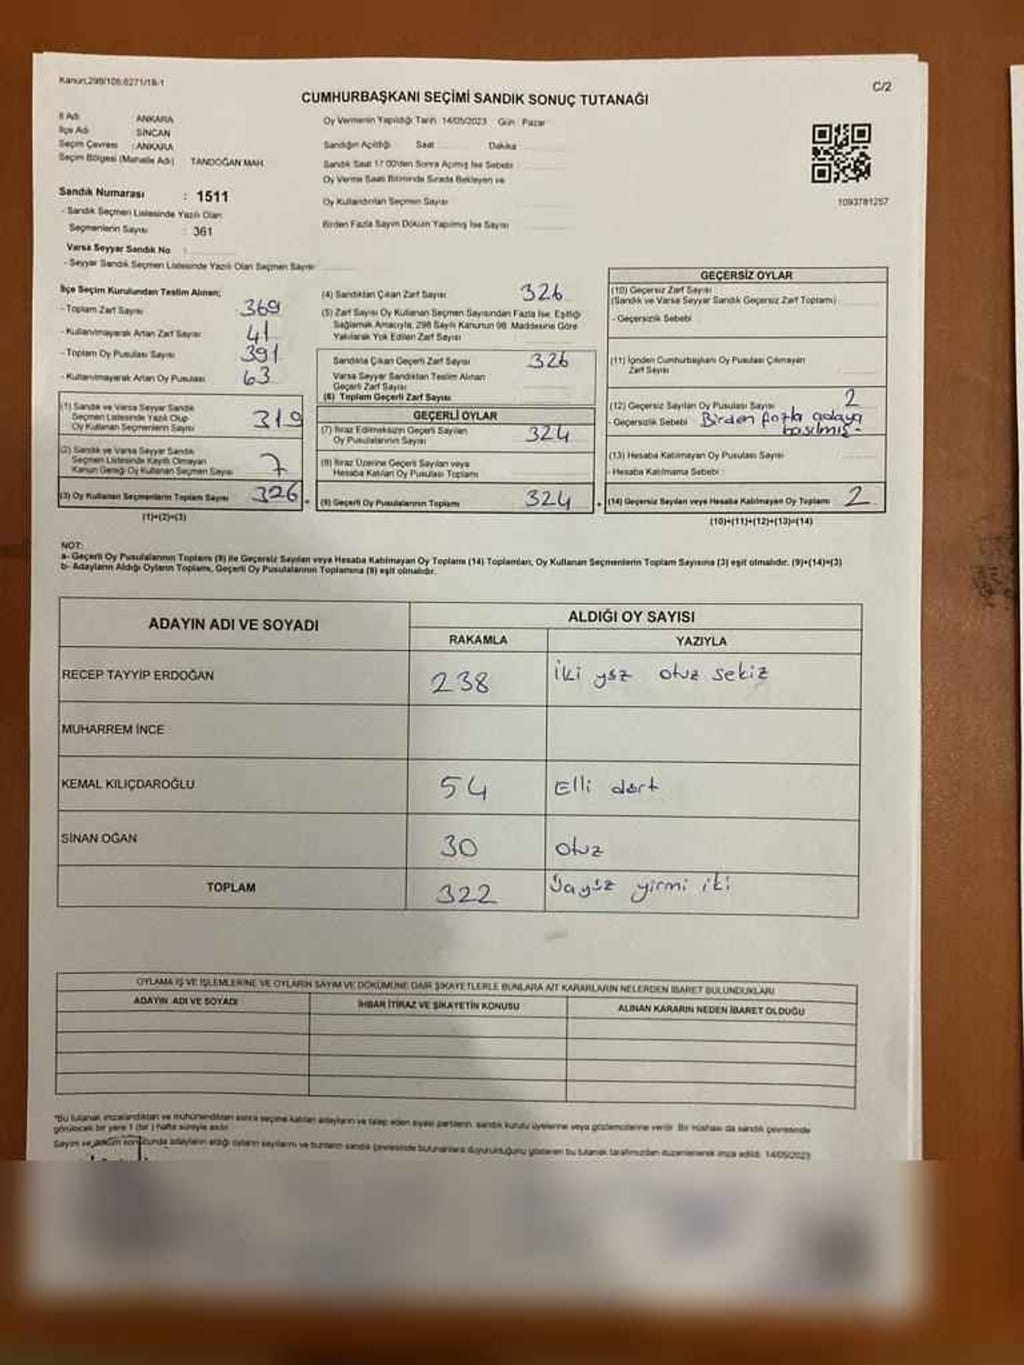 Kanun;298/105;6271/18-1
C/2
CUMHURBAŞKANI SEÇİMİ SANDIK SONUÇ TUTANAĞI
İl Adı : ANKARA
İlçe Adı : SİNCAN
Seçim Çevresi : ANKARA
Seçim Bölgesi (Mahalle Adı) : TANDOĞAN MAH.
Oy Vermenin Yapıldığı Tarih : 14/05/2023 Gün : Pazar
Sandığın Açıldığı Saat Dakika
Sandık Saat 17:00'den Sonra Açılmış İse Sebebi
Oy Verme Saati Bitiminde Sırada Bekleyen ve
Oy Kullandırılan Seçmen Sayısı
Birden Fazla Sayım Döküm Yapılmış İse Sayısı
1093781257
Sandık Numarası : 1511
- Sandık Seçmen Listesinde Yazılı Olan
Seçmenlerin Sayısı : 361
Varsa Seyyar Sandık No :
- Seyyar Sandık Seçmen Listesinde Yazılı Olan Seçmen Sayısı
İlçe Seçim Kurulundan Teslim Alınan;
- Toplam Zarf Sayısı 369
- Kullanılmayarak Artan Zarf Sayısı 41
- Toplam Oy Pusulası Sayısı 391
- Kullanılmayarak Artan Oy Pusulası 63
(1) Sandık ve Varsa Seyyar Sandık
Seçmen Listesinde Yazılı Olup
Oy Kullanan Seçmenlerin Sayısı 319
(2) Sandık ve Varsa Seyyar Sandık
Seçmen Listesinde Kayıtlı Olmayan
Kanun Gereği Oy Kullanan Seçmen Sayısı 7
(3) Oy Kullanan Seçmenlerin Toplam Sayısı 326
(1)+(2)=(3)
(4) Sandıktan Çıkan Zarf Sayısı 326
(5) Zarf Sayısı Oy Kullanan Seçmen Sayısından Fazla İse, Eşitliği
Sağlamak Amacıyla, 298 Sayılı Kanunun 98. Maddesine Göre
Yakılarak Yok Edilen Zarf Sayısı
Sandıkta Çıkan Geçerli Zarf Sayısı 326
Varsa Seyyar Sandıktan Teslim Alınan
Geçerli Zarf Sayısı
(6) Toplam Geçerli Zarf Sayısı
GEÇERLİ OYLAR
(7) İtiraz Edilmeksizin Geçerli Sayılan
Oy Pusulalarının Sayısı 324
(8) İtiraz Üzerine Geçerli Sayılan veya
Hesaba Katılan Oy Pusulası Toplamı
(9) Geçerli Oy Pusulalarının Toplamı 324
GEÇERSİZ OYLAR
(10) Geçersiz Zarf Sayısı
(Sandık ve Varsa Seyyar Sandık Geçersiz Zarf Toplamı)
- Geçersizlik Sebebi
(11) İçinden Cumhurbaşkanı Oy Pusulası Çıkmayan
Zarf Sayısı
(12) Geçersiz Sayılan Oy Pusulası Sayısı 2
- Geçersizlik Sebebi Birden fazla adaya
basılmış
(13) Hesaba Katılmayan Oy Pusulası Sayısı
- Hesaba Katılmama Sebebi
(14) Geçersiz Sayılan veya Hesaba Katılmayan Oy Toplamı 2
(10)+(11)+(12)+(13)=(14)
NOT:
a- Geçerli Oy Pusulalarının Toplamı (9) ile Geçersiz Sayılan veya Hesaba Katılmayan Oy Toplamı (14) Toplamları, Oy Kullanan Seçmenlerin Toplam Sayısına (3) eşit olmalıdır. (9)+(14)=(3)
b- Adayların Aldığı Oyların Toplamı, Geçerli Oy Pusulalarının Toplamına (9) eşit olmalıdır.
ADAYIN ADI VE SOYADI
ALDIĞI OY SAYISI
RAKAMLA YAZIYLA
RECEP TAYYİP ERDOĞAN 238 İki yüz otuz sekiz
MUHARREM İNCE
KEMAL KILIÇDAROĞLU 54 Elli dört
SİNAN OĞAN 30 otuz
TOPLAM 322 Üçyüz yirmi iki
OYLAMA İŞ VE İŞLEMLERİNE VE OYLARIN SAYIM VE DÖKÜMÜNE DAİR ŞİKAYETLERLE BUNLARA AİT KARARLARIN NELERDEN İBARET BULUNDUKLARI
ADAYIN ADI VE SOYADI İHBAR İTİRAZ VE ŞİKAYETİN KONUSU ALINAN KARARIN NEDEN İBARET OLDUĞU
*Bu tutanak imzalandıktan ve mühürlendikten sonra seçime katılan adayların ve talep eden siyasi partilerin sandık kurulu üyelerine veya gözlemcilerine verilir. Bir nüshası da sandık çevresinde
görülecek bir yere 1 (bir) hafta süreyle asılır.
Sayım ve döküm sonucunda adayların aldığı oyların sayılarını ve bunların sandık çevresinde bulunanlara duyurulduğunu gösteren bu tutanak tarafımızdan düzenlenerek imza edildi. 14/05/2023